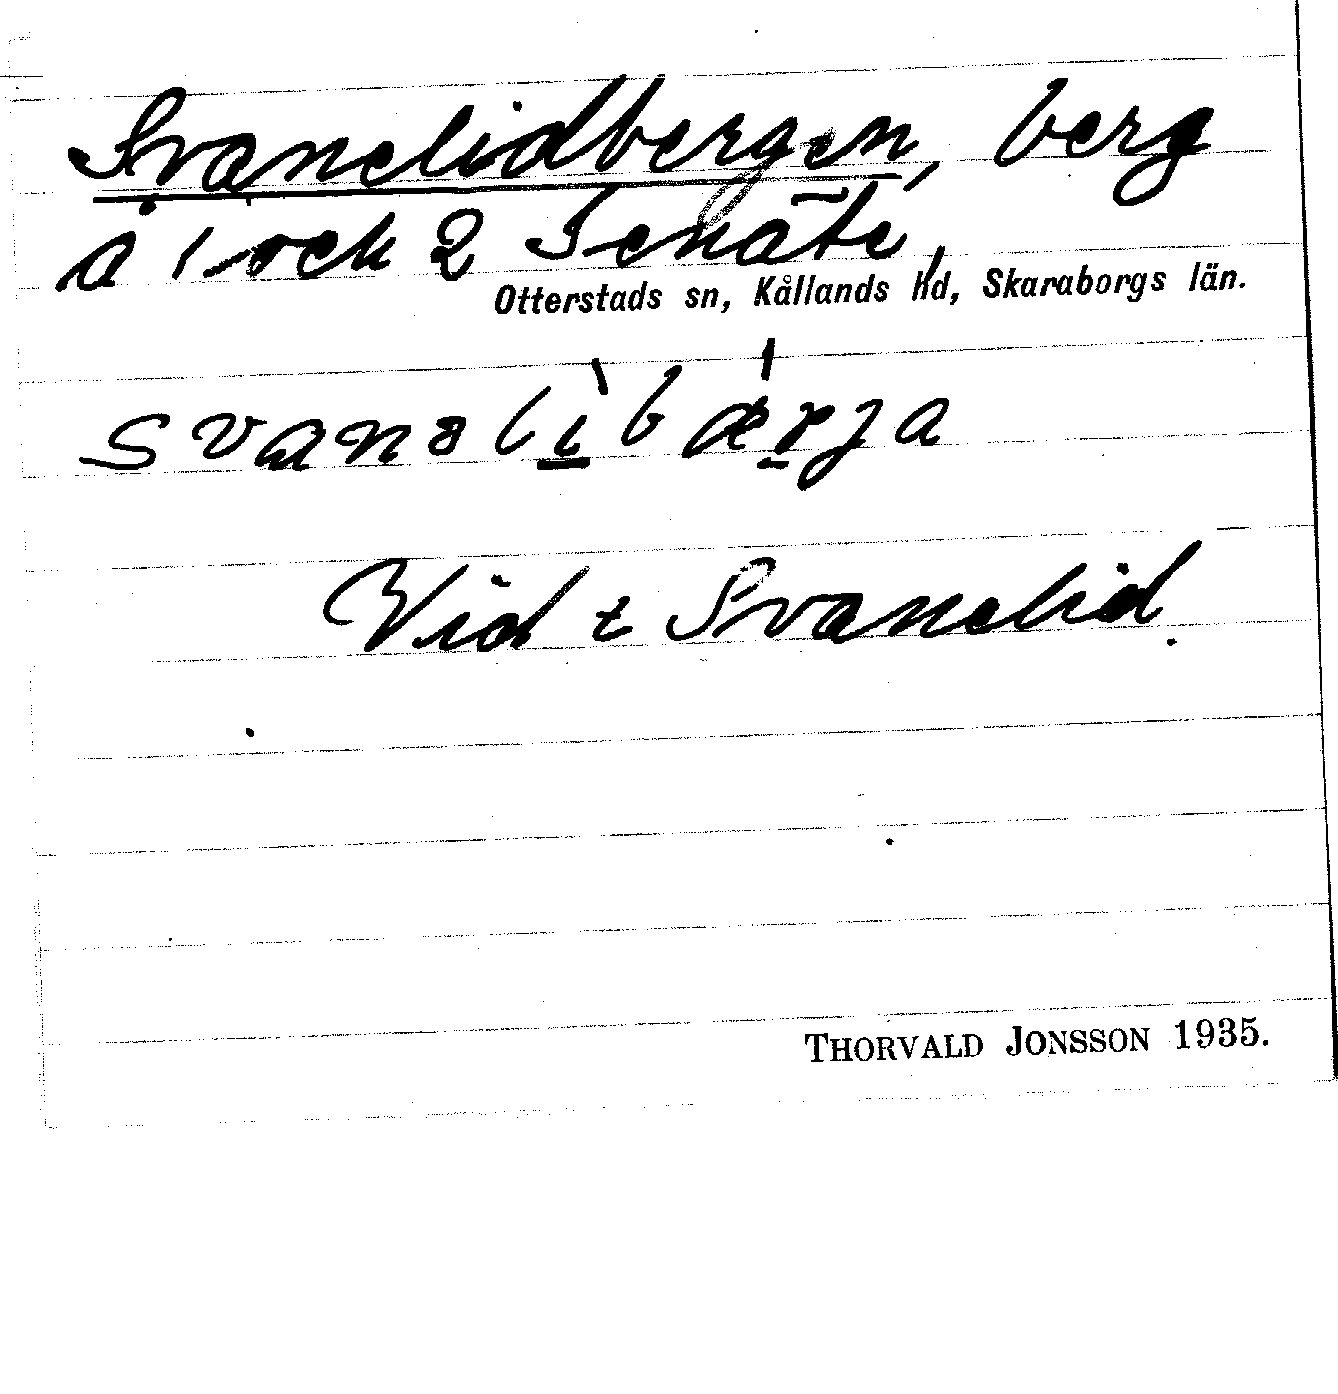 Svanelidbergen, berg
å 1 och 2 Senäte,
Otterstads sn, Kållands hd, Skaraborgs län.
svanəlìbǽrja
Vid t Svanelid.
THORVALD JONSSON 1935.